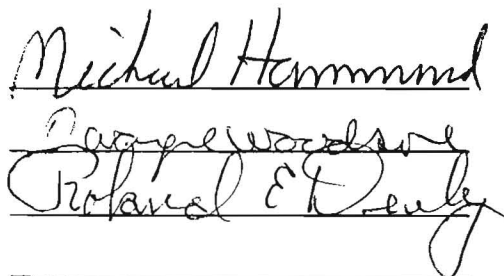 Michael Hammond
George Woodson
Roland E Denby